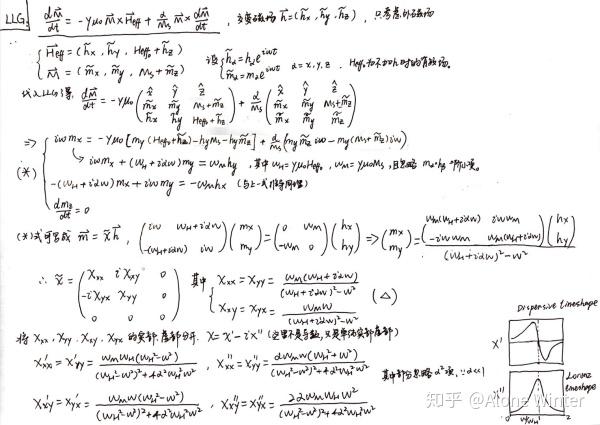 LLG: dM⃗/dt = -γμ₀ M⃗×H⃗eff + α/Ms M⃗×dM⃗/dt , 交变磁场 h⃗=(h̃x, h̃y, h̃z), 只考虑外磁场
∴ { H⃗eff = (h̃x, h̃y, Heff₀+h̃z)
M⃗ = (m̃x, m̃y, Ms+m̃z)
设 { h̃α = hα e^{iωt}
m̃α = mα e^{iωt} α = x, y, z. Heff₀为不加h时的有效场。
代入LLG得, dM⃗/dt = -γμ₀ ( x̂ ŷ ẑ ; m̃x m̃y Ms+m̃z ; h̃x h̃y Heff₀+h̃z ) + α/Ms ( x̂ ŷ ẑ ; m̃x m̃y Ms+m̃z ; ṁ̃x ṁ̃y ṁ̃z )
⇒ { iωmx = -γμ₀ [my (Heff₀+h̃z) - hyMs - hym̃z] + α/Ms (my m̃z iω - my(Ms+m̃z)iω)
(*) ↳ iωmx + (ωH + iαω)my = ωm hy , 其中 ωH = γμ₀Heff₀, ωm = γμ₀Ms, 且忽略 mα·hβ 项。
-(ωH + iαω)mx + iωmy = -ωm hx (与上一式推导同理)
dmz/dt = 0
(*)式可写成 m⃗ = χ̃h⃗, ( iω ωH+iαω ; -(ωH+iαω) iω )( mx ; my ) = ( 0 ωm ; -ωm 0 )( hx ; hy ) ⇒ ( mx ; my ) = ( ωm(ωH+iαω) iωωm ; -iωωm ωm(ωH+iαω) ) / ((ωH+iαω)²-ω²) ( hx ; hy )
∴ χ̃ = ( χxx iχxy 0 ; -iχxy χyy 0 ; 0 0 0 ) 其中 { χxx = χyy = ωm(ωH+iαω) / ((ωH+iαω)²-ω²)
χxy = χyx = ωmω / ((ωH+iαω)²-ω²) (△)
将 χxx, χyy, χxy, χyx 的实部虚部分开. χ = χ' - iχ''
χ'xx = χ'yy = ωmωH(ωH²-ω²) / ((ωH²-ω²)²+4α²ωH²ω²) , χ''xx = χ''yy = αωmω(ωH²+ω²) / ((ωH²-ω²)²+4α²ωH²ω²) 其中部分忽略α²项, ∵α<<1
χ'xy = χ'yx = ωmω(ωH²-ω²) / ((ωH²-ω²)²+4α²ωH²ω²) , χ''xy = χ''yx = 2αωmωHω² / ((ωH²-ω²)²+4α²ωH²ω²)
Dispersive lineshape
χ'
Lorenz lineshape
χ''
0
ω/ωH
2
知乎 @Alone Winter